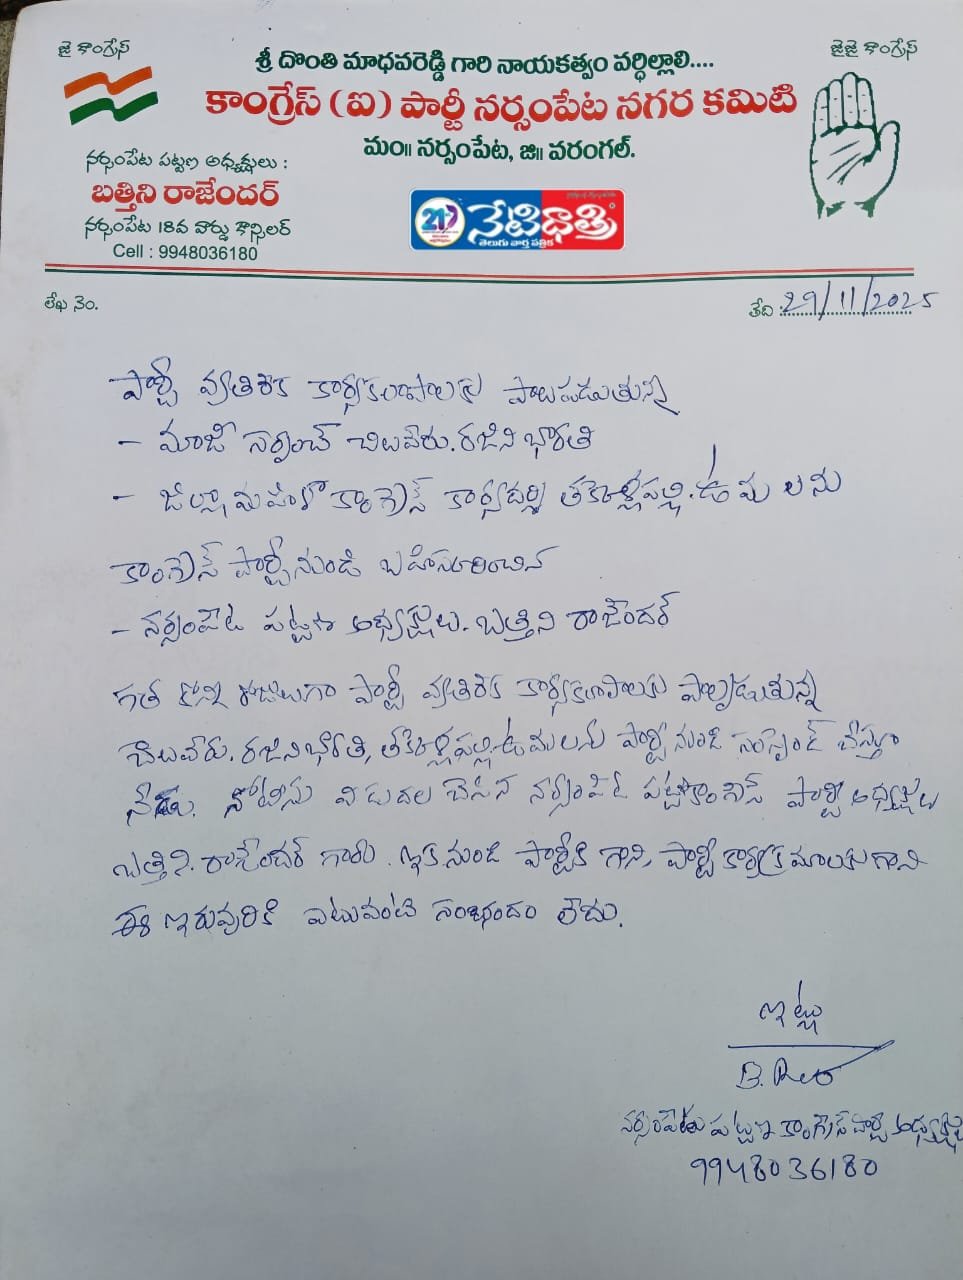 జై కాంగ్రేస్
జైజై కాంగ్రేస్
శ్రీ దొంతి మాధవరెడ్డి గారి నాయకత్వం వర్ధిల్లాలి....
కాంగ్రేస్ (ఐ) పార్టీ నర్సంపేట నగర కమిటి
మం॥ నర్సంపేట, జి॥ వరంగల్.
నర్సంపేట పట్టణ అధ్యక్షులు :
బత్తిని రాజేందర్
నర్సంపేట 18వ వార్డు కౌన్సిలర్
Cell : 9948036180
నేటిధాత్రి
తెలుగు వార్త పత్రిక
లేఖ నెం.
తేది :29/11/2025
పార్టీ వ్యతిరేక కార్యకలాపాలకు పాలుపడుతున్న
- మాజీ సర్పంచ్ చిలువేరు.రజినిభారతి
- జిల్లా మహిళా కాంగ్రెస్ కార్యదర్శి తక్కెళ్లపల్లి.ఉమ లను
కాంగ్రెస్ పార్టీ నుండి బహిష్కరించిన
- నర్సంపేట పట్టణ అధ్యక్షులు. బత్తిని రాజేందర్
గత కొన్ని రోజులుగా పార్టీ వ్యతిరేక కార్యకలాపాలకు పాల్పడుతున్న
చిలువేరు.రజినిభారతి, తక్కెళ్లపల్లి.ఉమలను పార్టీ నుండి సస్పెండ్ చేస్తూ
నేడు. నోటీసు విడుదల చేసిన నర్సంపేట పట్టణ కాంగ్రెస్ పార్టీ అధ్యక్షులు
బత్తిని. రాజేందర్ గారు. ఇక నుండి పార్టీకి గాని, పార్టీ కార్యక్రమాలకు గాని
ఈ ఇరువురికి ఎటువంటి సంబంధం లేదు.
ఇట్లు
నర్సంపేట పట్టణ కాంగ్రెస్ పార్టీ అధ్యక్షులు
9948036180